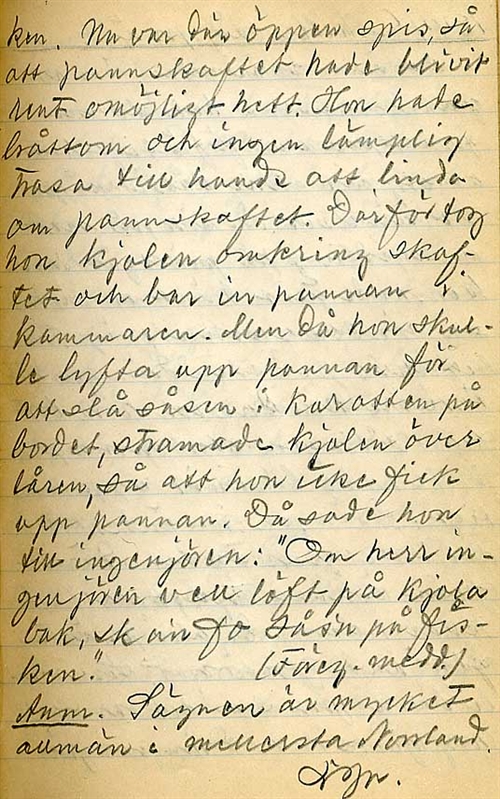 ken. Nu var där öppen spis, så
att pannskaftet hade blivit
rent omöjligt hett. Hon hade
bråttom och ingen lämplig
trasa till hands att linda
om pannskaftet. Därför tog
hon kjolen omkring skaf-
tet och bar in pannan i
kammaren. Men då hon skul-
le lyfta upp pannan för
att slå såsen i karotten på
bordet, stramade kjolen över
låren, så att hon icke fick
upp pannan. Då sade hon
till ingenjören: "Om herr in-
genjören vell löft på kjola
bak, sk an få såsn på fis-
ken." (Föreg. medd.)
Anm. Sägnen är mycket
allmän i mellersta Norrland.